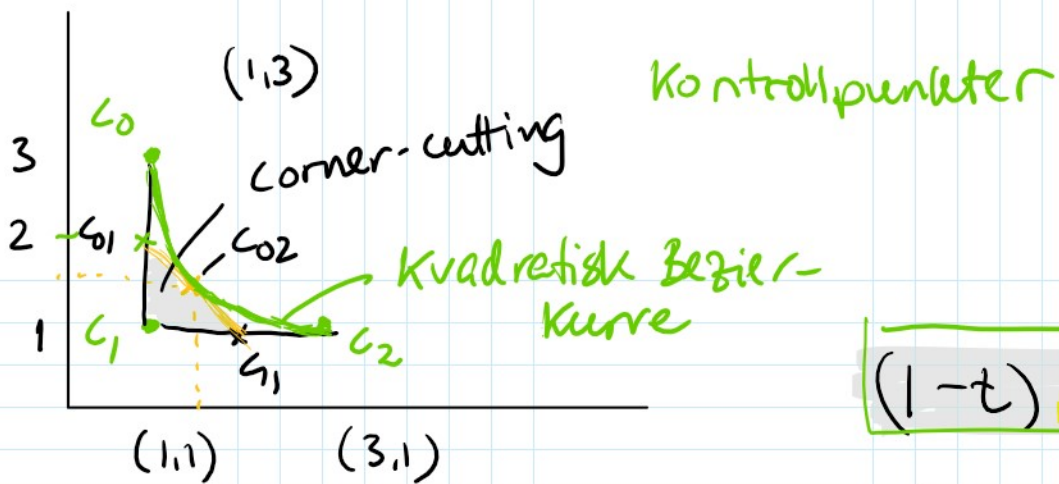 (1,3)
Kontrollpunkter
C0
3
corner-cutting
2
C01
C02
Kvadratisk Bezier-
Kurve
1
C1
C2
C11
(1-t)
(1,1)
(3,1)